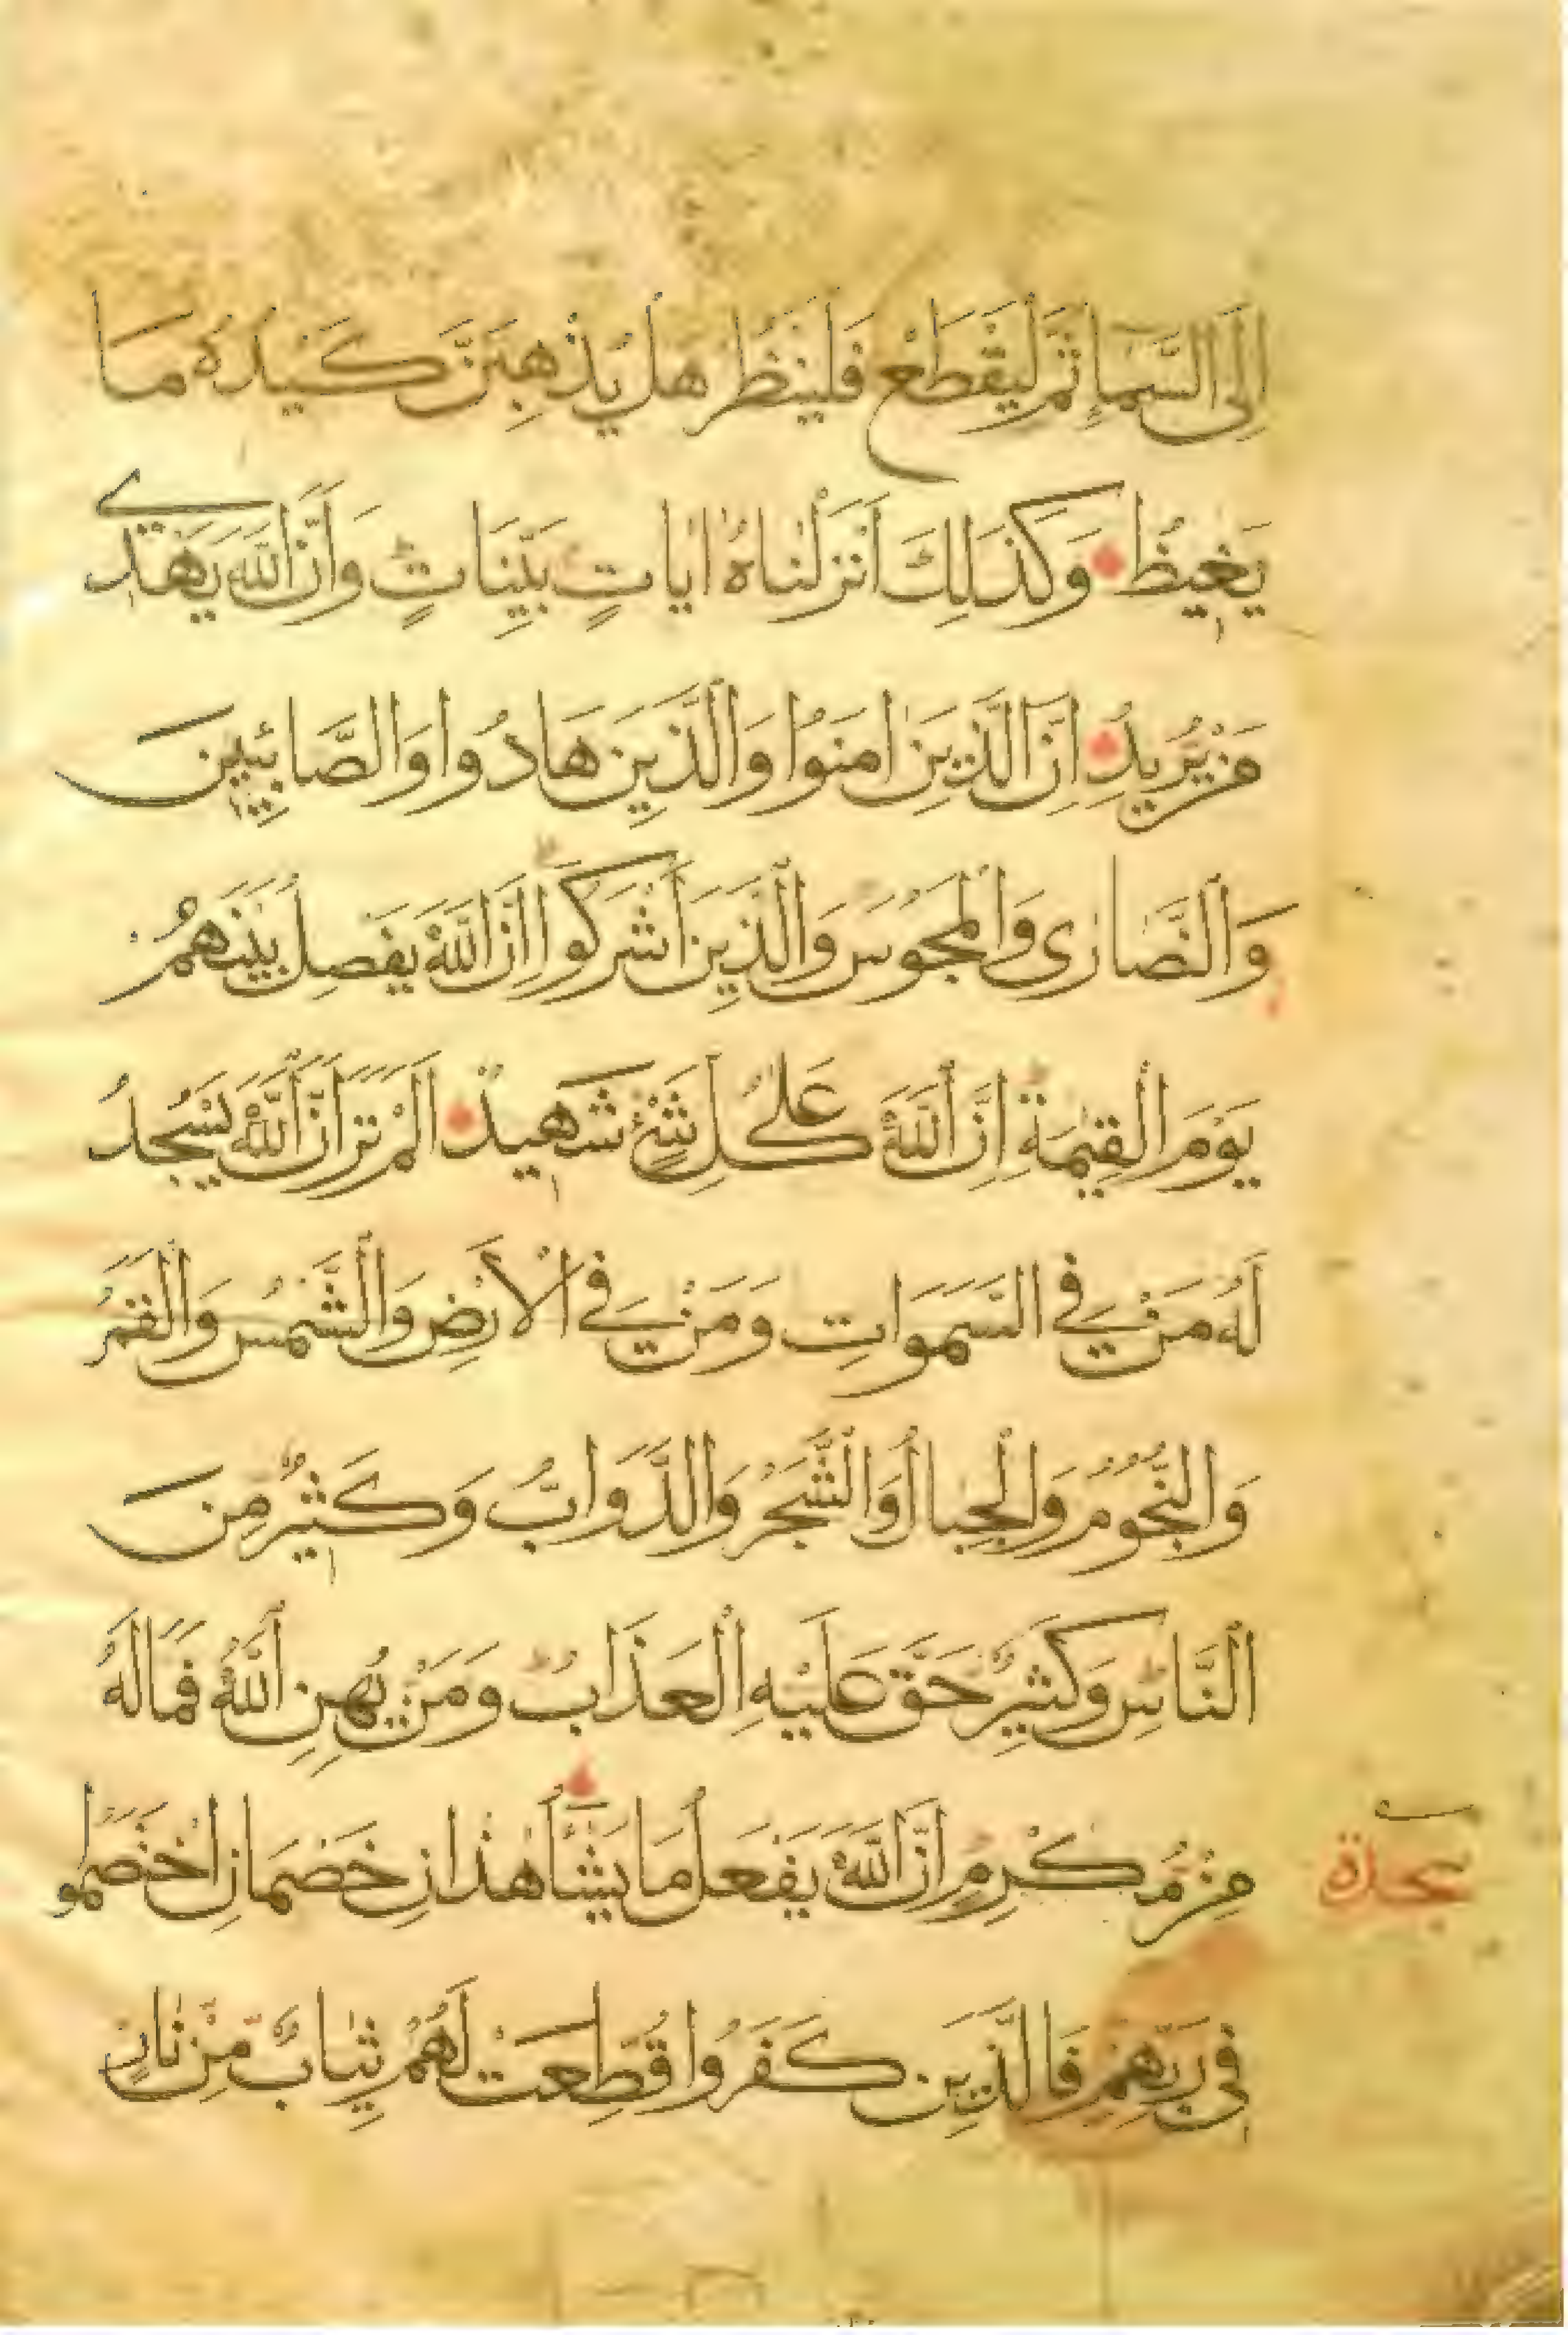 اِلَى السَّمَاءِ ثُمَّ لْيَقْطَعْ فَلْيَنْظُرْ هَلْ يُذْهِبَنَّ كَيْدُهُ مَا
يَغِيظُ وَكَذَلِكَ اَنْزَلْنَاهُ ايَاتٍ بَيِّنَاتٍ وَاَنَّ اللّٰهَ يَهْدِى
مَنْ يُرِيدُ اِنَّ الَّذِينَ امَنُوا وَالَّذِينَ هَادُوا وَالصَّابِئِينَ
وَالنَّصَارٰى وَالْمَجُوسَ وَالَّذِينَ اَشْرَكُوا اِنَّ اللّٰهَ يَفْصِلُ بَيْنَهُمْ
يَوْمَ الْقِيٰمَةِ اِنَّ اللّٰهَ عَلٰى كُلِّ شَىْءٍ شَهِيدٌ اَلَمْ تَرَ اَنَّ اللّٰهَ يَسْجُدُ
لَهُ مَنْ فِى السَّمَوَاتِ وَمَنْ فِى الْاَرْضِ وَالشَّمْسُ وَالْقَمَرُ
وَالنُّجُومُ وَالْجِبَالُ وَالشَّجَرُ وَالدَّوَابُّ وَكَثِيرٌ مِنَ
النَّاسِ وَكَثِيرٌ حَقَّ عَلَيْهِ الْعَذَابُ وَمَنْ يُهِنِ اللّٰهُ فَمَا لَهُ
مِنْ مُكْرِمٍ اِنَّ اللّٰهَ يَفْعَلُ مَا يَشَاءُ هٰذَانِ خَصْمَانِ اخْتَصَمُوا
سجدة
فِى رَبِّهِمْ فَالَّذِينَ كَفَرُوا قُطِّعَتْ لَهُمْ ثِيَابٌ مِنْ نَارٍ